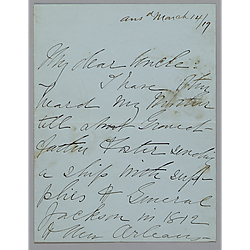 ans^d March 14/19
My dear Uncle:
I have often
heard my Mother
tell about Grand-
father Foster sending
a ship with sup-
plies to General
Jackson in 1812
to New Orleans